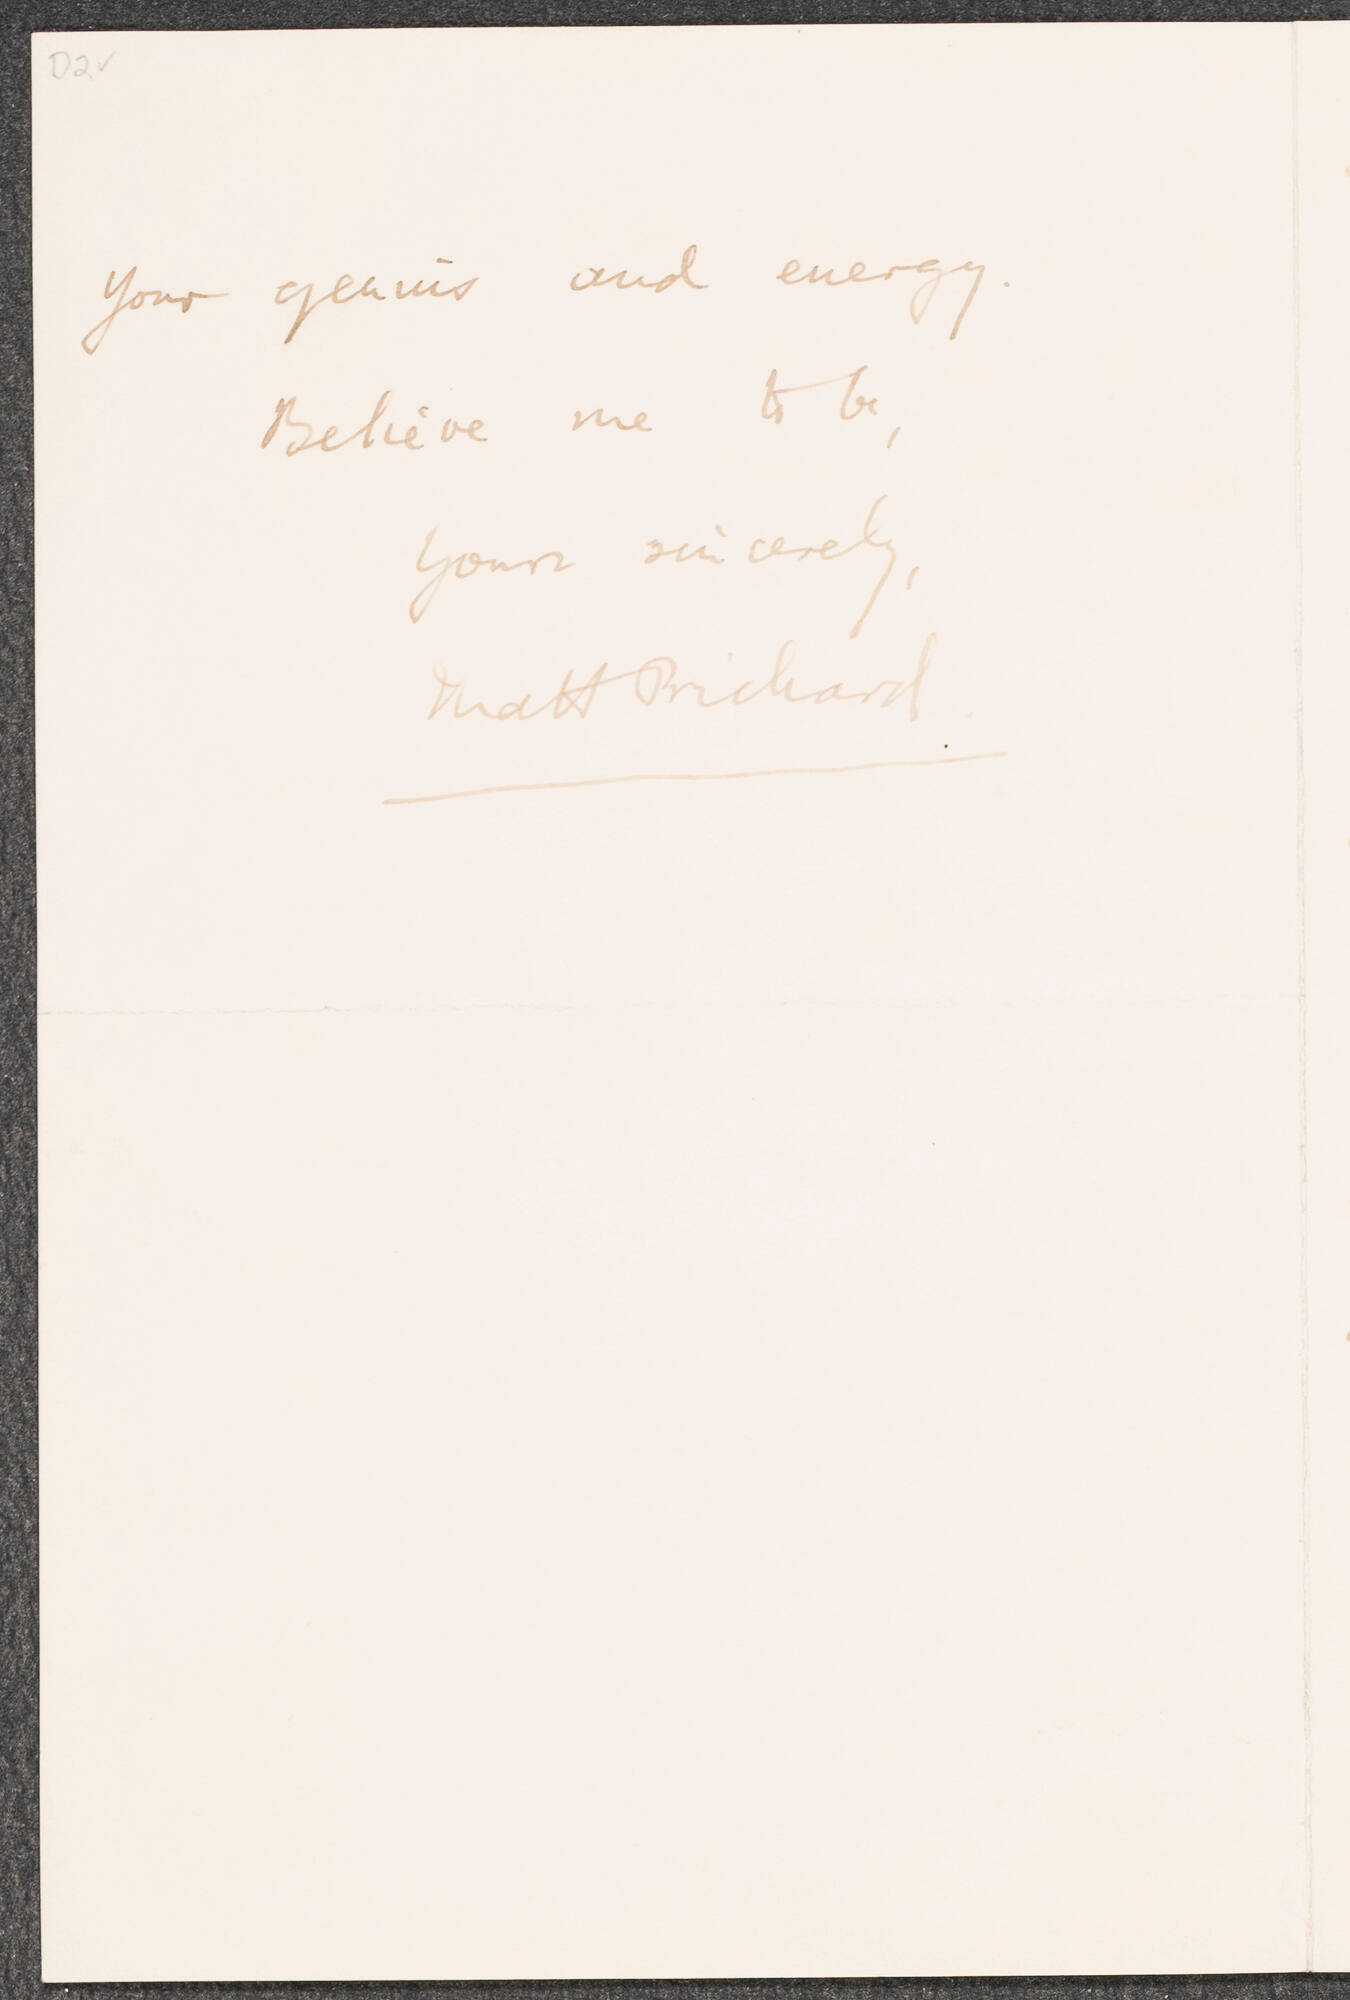 D2v
your genius and energy.
Believe me to be,
Yours sincerely,
Matt Prichard.